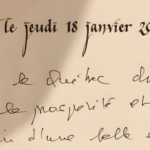 le jeudi 18 janvier 20
le Québec d
la prospérité et
d'une belle